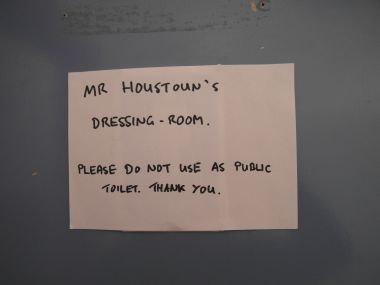 MR HOUSTOUN'S
DRESSING-ROOM.
PLEASE DO NOT USE AS PUBLIC
TOILET. THANK YOU.